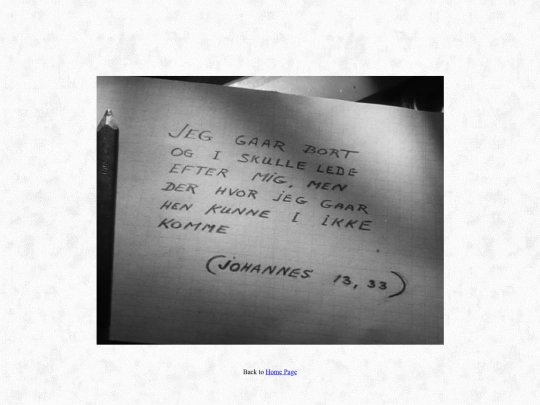 JEG GAAR BORT
OG I SKULLE LEDE
EFTER MIG, MEN
DER HVOR JEG GAAR
HEN KUNNE I IKKE
KOMME
(JOHANNES 13, 33)
Back to Home Page